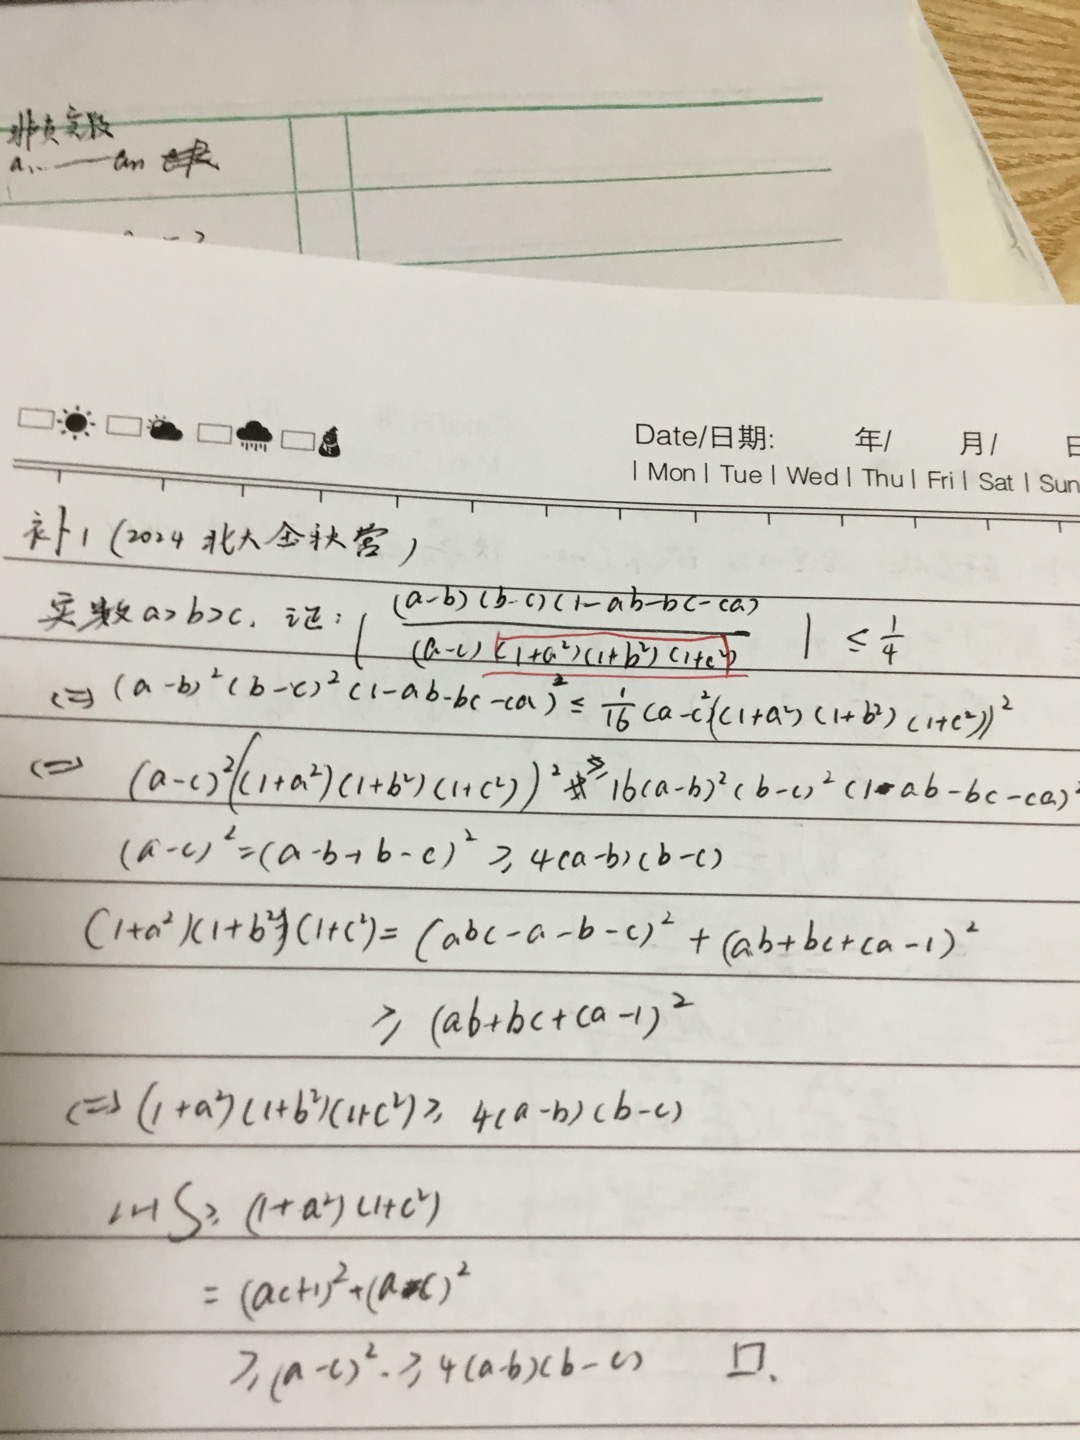 非负实数
a₁……an
Date/日期: 年/ 月/ 日
| Mon | Tue | Wed | Thu | Fri | Sat | Sun
补1 (2024 北大金秋营)
实数a>b>c. 记: | (a-b)(b-c)(1-ab-bc-ca) / (a-c)(1+a²)(1+b²)(1+c²) | ≤ 1/4
<=> (a-b)²(b-c)²(1-ab-bc-ca)² ≤ 1/16 (a-c)²((1+a²)(1+b²)(1+c²))²
<=> (a-c)²((1+a²)(1+b²)(1+c²))² ≥ 16(a-b)²(b-c)²(1-ab-bc-ca)²
(a-c)²=(a-b+b-c)² ≥ 4(a-b)(b-c)
(1+a²)(1+b²)(1+c²)= (abc-a-b-c)² + (ab+bc+ca-1)²
≥ (ab+bc+ca-1)²
<=> (1+a²)(1+b²)(1+c²) ≥ 4(a-b)(b-c)
LHS ≥ (1+a²)(1+c²)
= (ac+1)²+(a-c)²
≥ (a-c)². ≥ 4(a-b)(b-c) □.